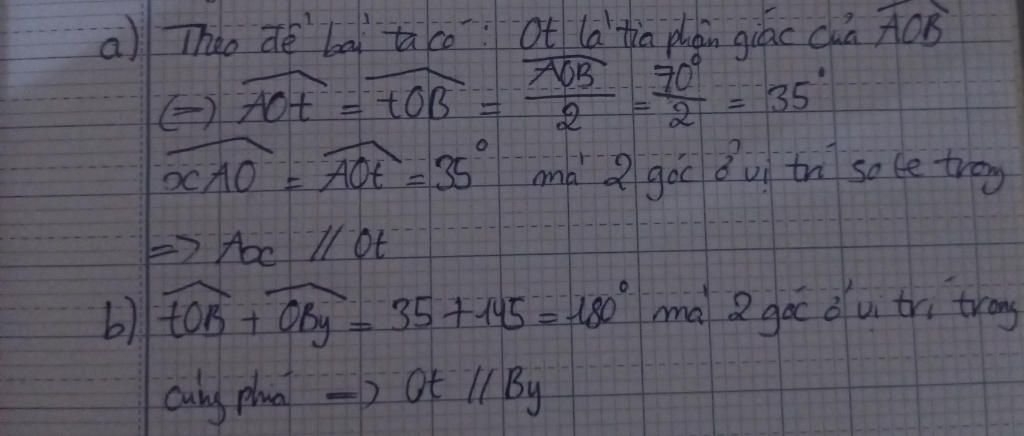 a) Theo đề bài ta có: Ot là tia phân giác của AOB
(=) AOt = tOB = AOB/2 = 70°/2 = 35°
xAO = AOt = 35° mà 2 góc ở vị trí so le trong
=> Ax // Ot
b) tOB + OBy = 35 + 145 = 180° mà 2 góc ở vị trí trong
cùng phía => Ot // By